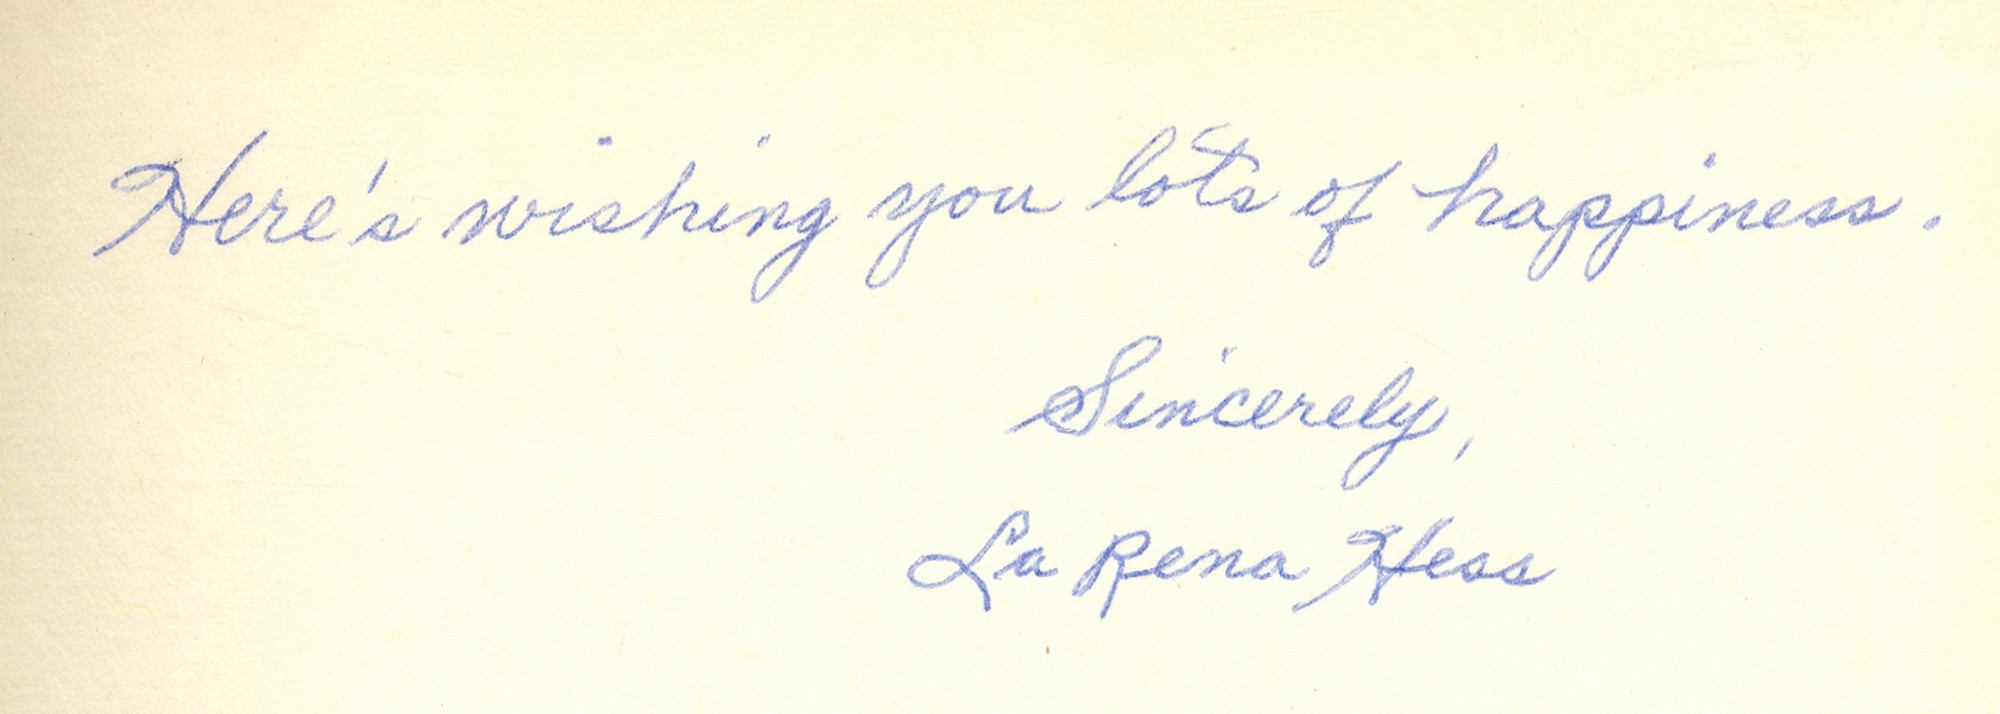 Here's wishing you lots of happiness.
Sincerely,
La Rena Hess